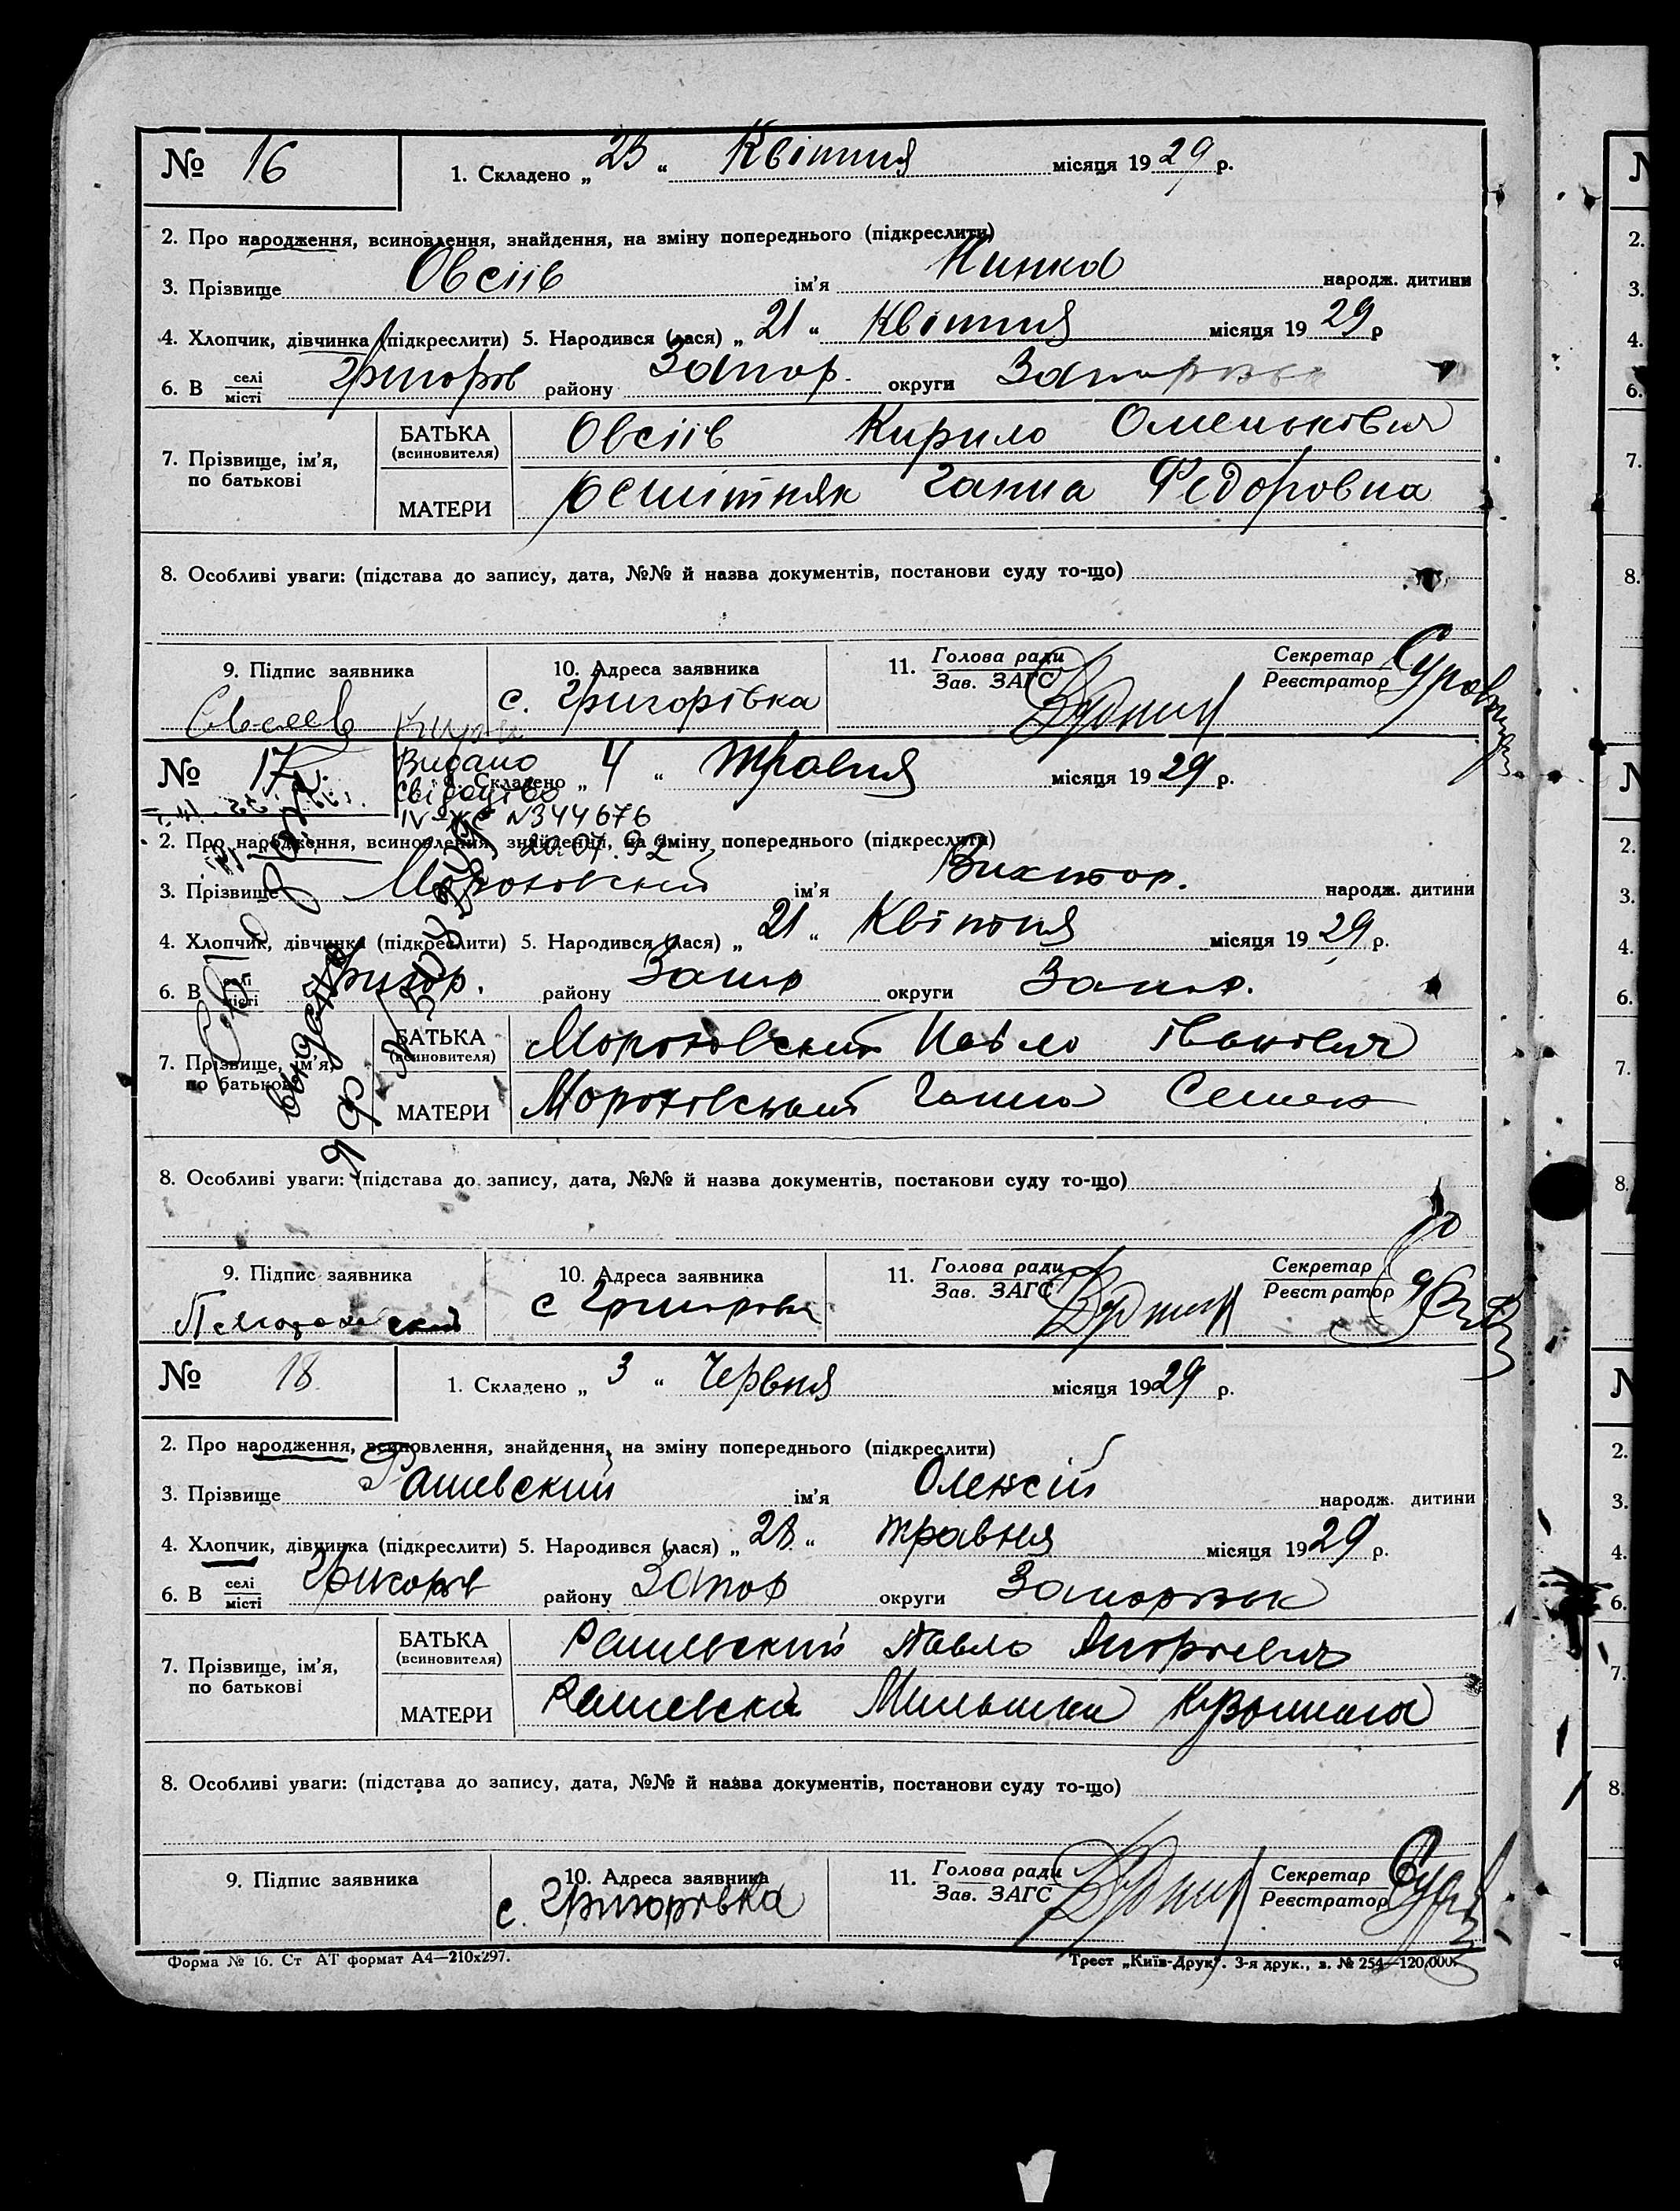 № 16 1. Складено „ 25 “ Квітня місяця 1929 р.
2. Про народження, всиновлення, знайдення, на зміну попереднього (підкреслити)
3. Прізвище Овсіїв ім'я Нинка народж. дитини
4. Хлопчик, дівчинка (підкреслити) 5. Народився (лася) „ 21 “ Квітня місяця 19 29 р
6. В селі місті Григоров району Запор. округи
7. Прізвище, ім'я, по батькові
БАТЬКА (всиновителя) Овсіїв Кирило
МАТЕРИ Ганна Федоровна
8. Особливі уваги: (підстава до запису, дата, №№ й назва документів, постанови суду то-що)
9. Підпис заявника 10. Адреса заявника 11. Голова ради Зав. ЗАГС Секретар Реєстратор
с. Григорівка
№ 17 1. Складено „ 4 “ Травня місяця 1929 р.
Видано
свідоцтво
IV-ЖС N344676
20.07.92
2. Про народження, всиновлення, знайдення, на зміну попереднього (підкреслити)
3. Прізвище Мороховский ім'я Виктор. народж. дитини
4. Хлопчик, дівчинка (підкреслити) 5. Народився (лася) „ 21 “ Квітня місяця 19 29 р.
6. В селі місті Григор. району Запор округи Запор.
выдано
7. Прізвище, ім'я, по батькові
БАТЬКА (всиновителя) Мороховский Павло Іванович
МАТЕРИ Ганна
8. Особливі уваги: (підстава до запису, дата, №№ й назва документів, постанови суду то-що)
9. Підпис заявника 10. Адреса заявника 11. Голова ради Зав. ЗАГС Секретар Реєстратор
№ 18 1. Складено „ 3 “ Червня місяця 1929 р.
2. Про народження, всиновлення, знайдення, на зміну попереднього (підкреслити)
3. Прізвище Рашевский ім'я Олексій народж. дитини
4. Хлопчик, дівчинка (підкреслити) 5. Народився (лася) „ 28 “ травня місяця 1929 р.
6. В селі місті району Запор округи
7. Прізвище, ім'я, по батькові
БАТЬКА (всиновителя) Рашевский Павло
МАТЕРИ Рашевска
8. Особливі уваги: (підстава до запису, дата, №№ й назва документів, постанови суду то-що)
9. Підпис заявника 10. Адреса заявника 11. Голова ради Зав. ЗАГС Секретар Реєстратор
с. Григоровка
Форма № 16. Ст АТ формат А4—210х297. Трест „Київ-Друк". 3-я друк., з. № 254—120.000.